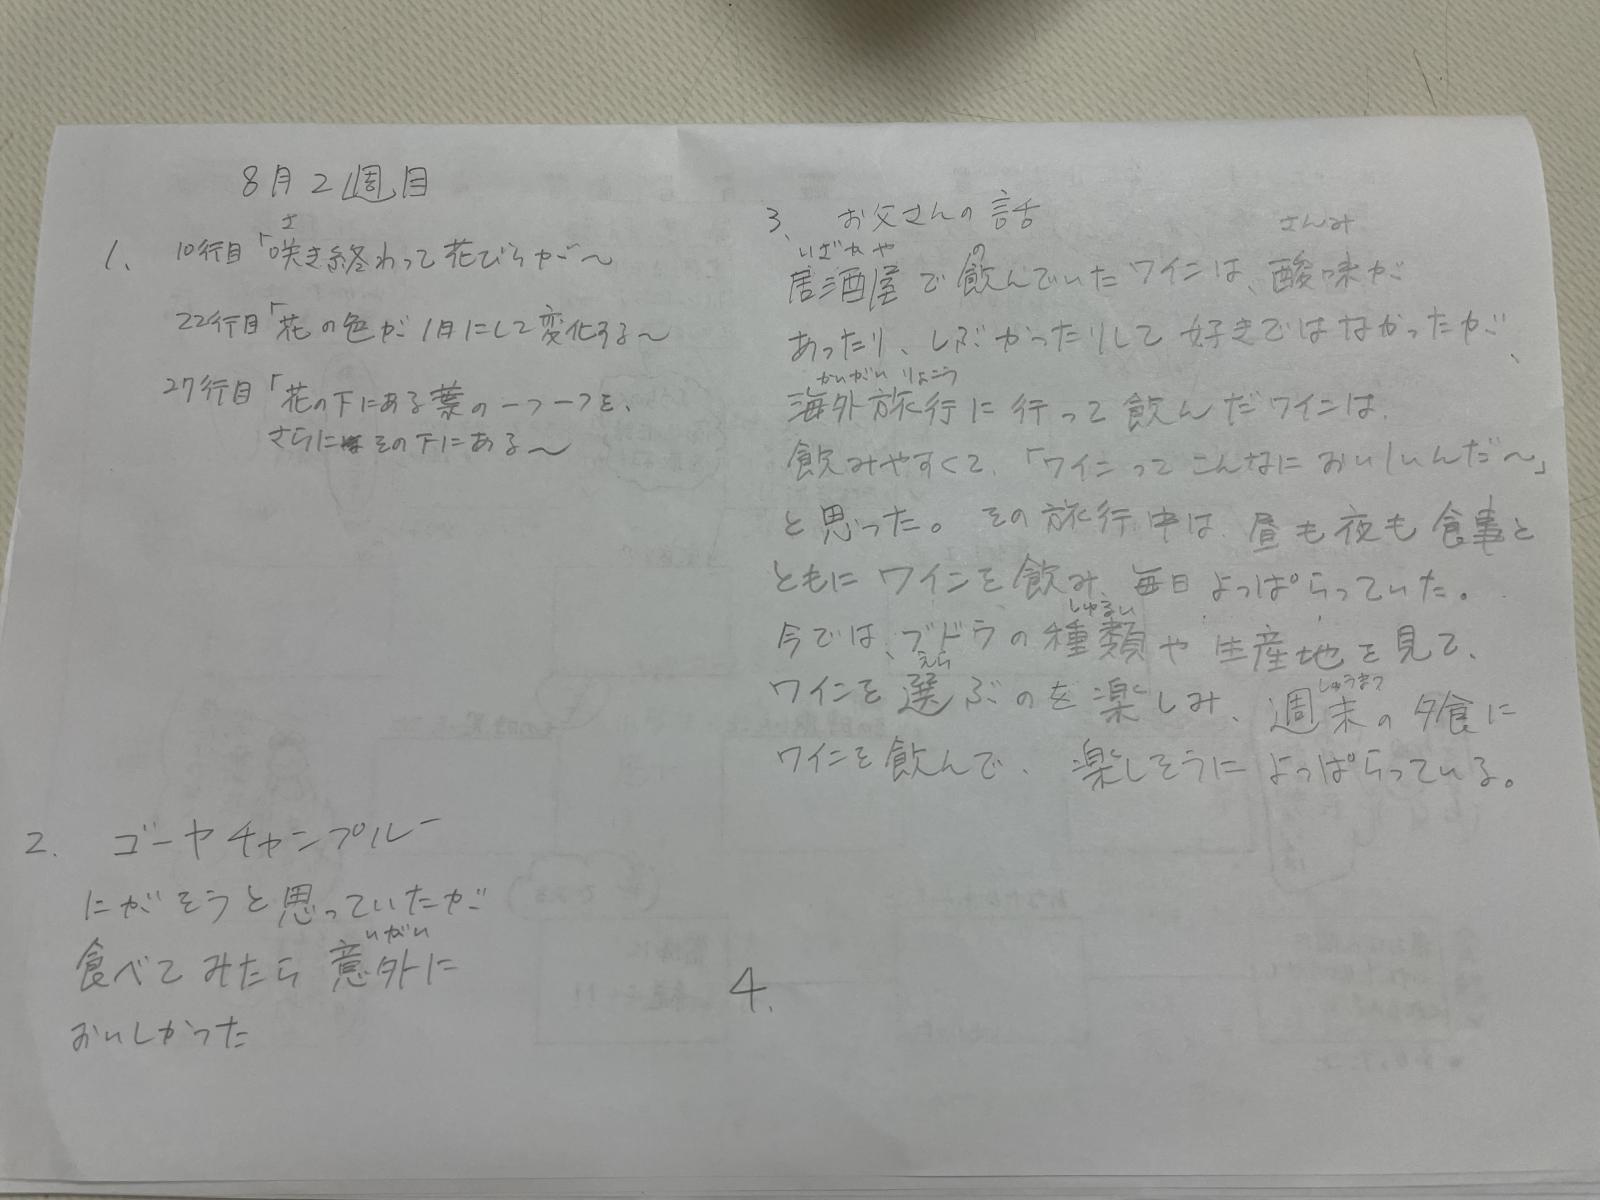 8月2週目
1. 10行目「咲き終わって花びらが〜
さ
22行目「花の色が1日にして変化する〜
27行目「花の下にある葉の一つ一つを、
さらにその下にある〜
2. ゴーヤチャンプルー
にがそうと思っていたが
いがい
食べてみたら意外に
おいしかった
3、お父さんの話
いざかや の さんみ
居酒屋で飲んでいたワインは、酸味が
あったり、しぶかったりして好きではなかったが、
かいがいりょこう
海外旅行に行って飲んだワインは、
飲みやすくて、「ワインってこんなにおいしいんだ〜」
と思った。その旅行中は、昼も夜も食事と
ともにワインを飲み、毎日よっぱらっていた。
しゅるい
今では、ブドウの種類や生産地を見て、
えら しゅうまつ
ワインを選ぶのを楽しみ、週末の夕食に
ワインを飲んで、楽しそうによっぱらっている。
4.